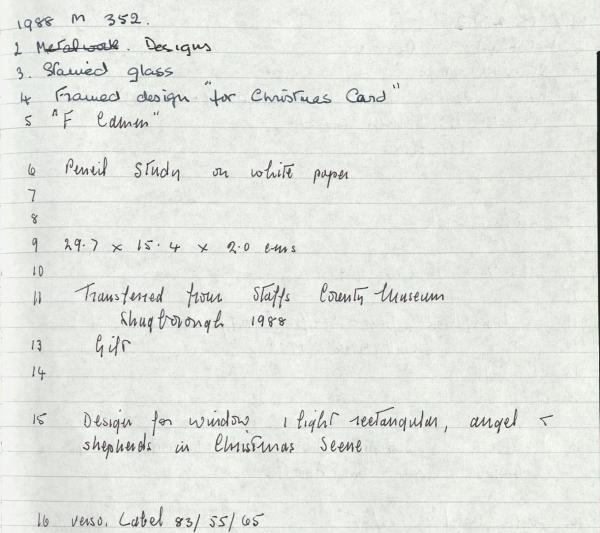 1988 M 352.
2 Metalwork. Designs
3. Stained glass
4 Framed design "for Christmas Card"
5 "F Camm"
6 Pencil Study on white paper
7
8
9 29.7 x 15.4 x 2.0 cms
10
11 Transferred from Staffs County Museum
Shugborough 1988
13 Gift
14
15 Design for window 1 light rectangular, angel
shepherds in Christmas Scene
16 verso. Label 83/55/65